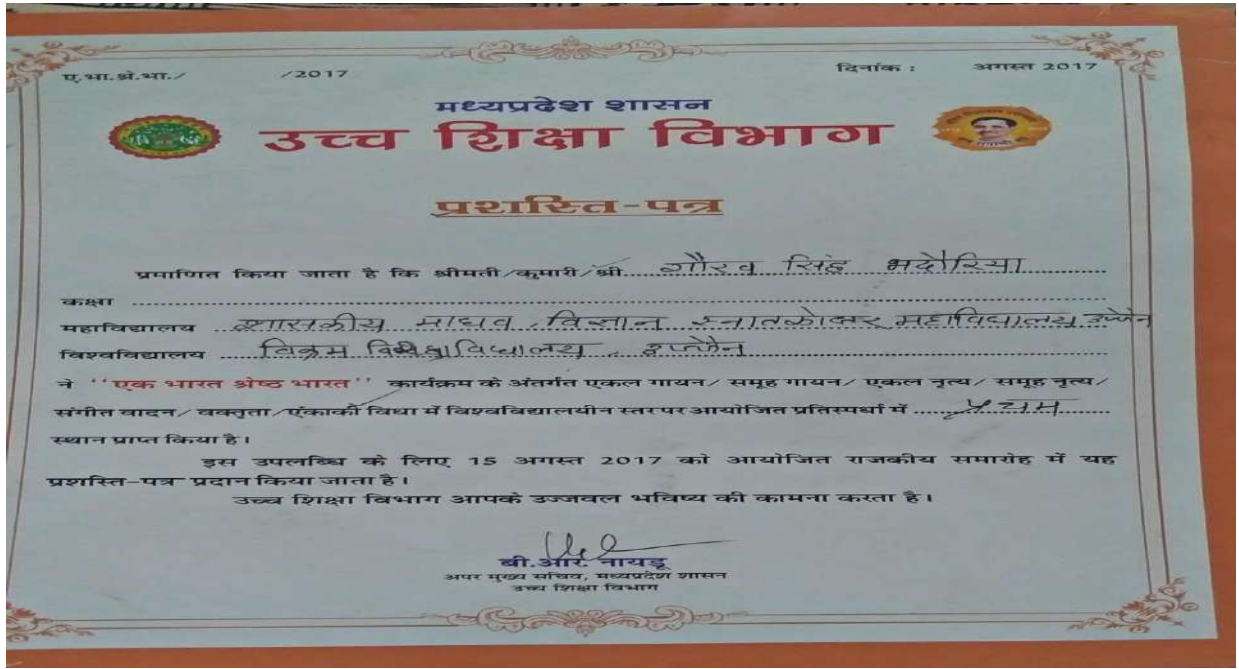 ए.भा.श्रे.भा./ /2017 दिनांक : अगस्त 2017
मध्यप्रदेश शासन
उच्च शिक्षा विभाग
प्रशस्ति-पत्र
प्रमाणित किया जाता है कि श्रीमती/कुमारी/श्री गौरव सिंह भदौरिया
कक्षा
महाविद्यालय शासकीय माधव विज्ञान स्नातकोत्तर महाविद्यालय उज्जैन
विश्वविद्यालय विक्रम विश्वविद्यालय, उज्जैन
ने ''एक भारत श्रेष्ठ भारत'' कार्यक्रम के अंतर्गत एकल गायन/ समूह गायन/ एकल नृत्य/ समूह नृत्य/
संगीत वादन/ वक्तृता/एंकाकी विधा में विश्वविद्यालयीन स्तर पर आयोजित प्रतिस्पर्धा में प्रथम
स्थान प्राप्त किया है।
इस उपलब्धि के लिए 15 अगस्त 2017 को आयोजित राजकीय समारोह में यह
प्रशस्ति-पत्र प्रदान किया जाता है।
उच्च शिक्षा विभाग आपके उज्जवल भविष्य की कामना करता है।
बी.आर. नायडू
अपर मुख्य सचिव, मध्यप्रदेश शासन
उच्च शिक्षा विभाग